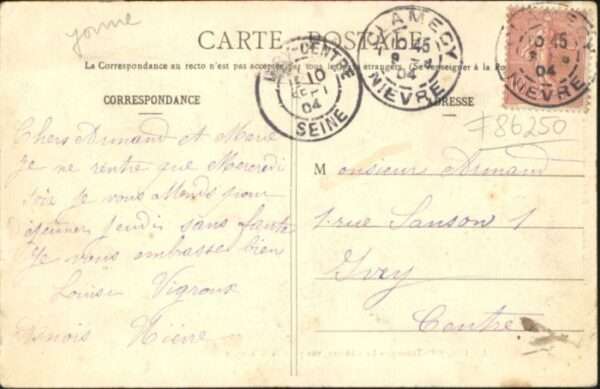 yonne
CARTE POSTALE
La Correspondance au recto n'est pas acceptée par tous les pays étrangers. (Se renseigner à la Po
CORRESPONDANCE
ADRESSE
CLAMECY
10 45
9
04
NIEVRE
CENTRE
10
04
SEINE
10 45
04
NIEVRE
#86250
Chers Armand et Marie
Je ne rentre que Mercredi
soir je vous attends pour
déjeuner Jeudi sans faute
Je vous embrasse bien
Louise Vigroux
Nièvre
Monsieur Armand
1 rue Sanson 1
Ivry
Centre